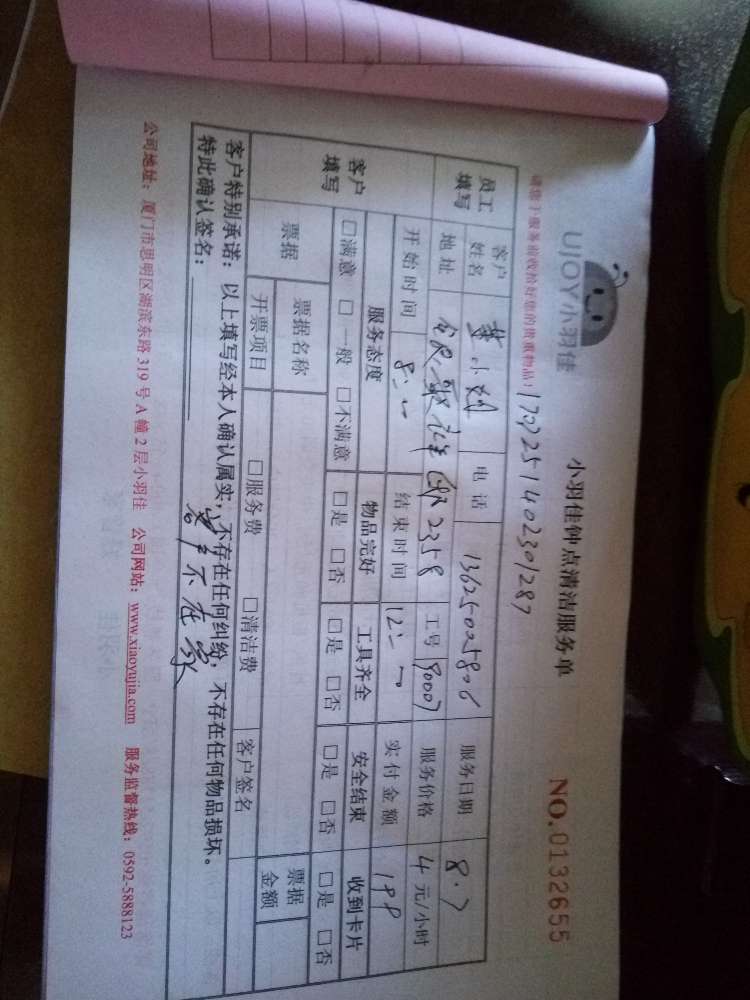 UJOY小羽佳
小羽佳钟点清洁服务单
NO.0132655
请您于服务前收拾好您的贵重物品！
员工填写 客户姓名 小 电话 服务日期
地址 2358 工号 90007 服务价格 4 元/小时
开始时间 结束时间 实付金额 198
客户填写 服务态度 物品完好 工具齐全 安全结束 收到卡片
□满意 □一般 □不满意 □是 □否 □是 □否 □是 □否 □是 □否
票据 票据名称 票据金额
开票项目 □服务费 □清洁费 客户签名
客户特别承诺：以上填写经本人确认属实，不存在任何纠纷，不存在任何物品损坏。
特此确认签名： 客户不在家
公司地址：厦门市思明区湖滨东路 319 号 A 幢 2 层小羽佳 公司网站：www.xiaoyujia.com 服务监督热线：0592-5888123